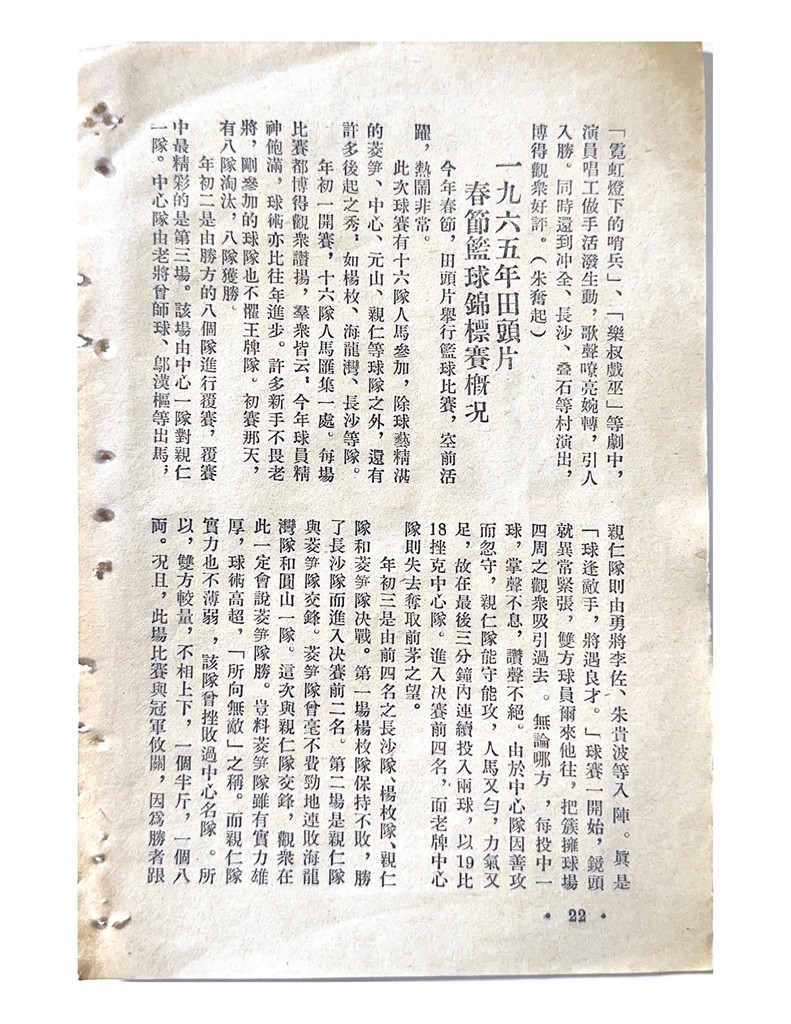 「霓虹燈下的哨兵」、「樂叔戲巫」等劇中，
演員唱工做手活潑生動，歌聲嘹亮婉轉，引人
入勝。同時還到冲全、長沙、叠石等村演出，
博得觀衆好評。（朱奮起）
一九六五年田頭片
春節籃球錦標賽概况
今年春節，田頭片舉行籃球比賽，空前活
躍，熱鬧非常。
此次球賽有十六隊人馬參加，除球藝精湛
的菱笋、中心、元山、親仁等球隊之外，還有
許多後起之秀，如楊枚、海龍灣、長沙等隊。
年初一開賽，十六隊人馬匯集一處。每場
比賽都博得觀衆讚揚，羣衆皆云，今年球員精
神飽滿，球術亦比往年進步。許多新手不畏老
將，剛參加的球隊也不懼王牌隊。初賽那天，
有八隊淘汰，八隊獲勝。
年初二是由勝方的八個隊進行覆賽，覆賽
中最精彩的是第三場。該場由中心一隊對親仁
一隊。中心隊由老將曾師球、鄔漢樞等出馬；
親仁隊則由勇將李佐、朱貴波等入陣。眞是
「球逢敵手，將遇良才。」球賽一開始，鏡頭
就異常緊張，雙方球員爾來他往，把簇擁球場
四周之觀衆吸引過去。無論哪方，每投中一
球，掌聲不息，讚聲不絕。由於中心隊因善攻
而忽守，親仁隊能守能攻，人馬又匀，力氣又
足，故在最後三分鐘內連續投入兩球，以19比
18挫克中心隊。進入決賽前四名，而老牌中心
隊則失去奪取前茅之望。
年初三是由前四名之長沙隊、楊枚隊、親仁
隊和菱笋隊決戰。第一場楊枚隊保持不敗，勝
了長沙隊而進入決賽前二名。第二場是親仁隊
與菱笋隊交鋒。菱笋隊曾毫不費勁地連敗海龍
灣隊和圓山一隊。這次與親仁隊交鋒，觀衆在
此一定會說菱笋隊勝。豈料菱笋隊雖有實力雄
厚，球術高超，「所向無敵」之稱。而親仁隊
實力也不薄弱，該隊曾挫敗過中心名隊。所
以，雙方較量，不相上下，一個半斤，一個八
両。况且，此場比賽與冠軍攸關，因爲勝者跟
• 22 •